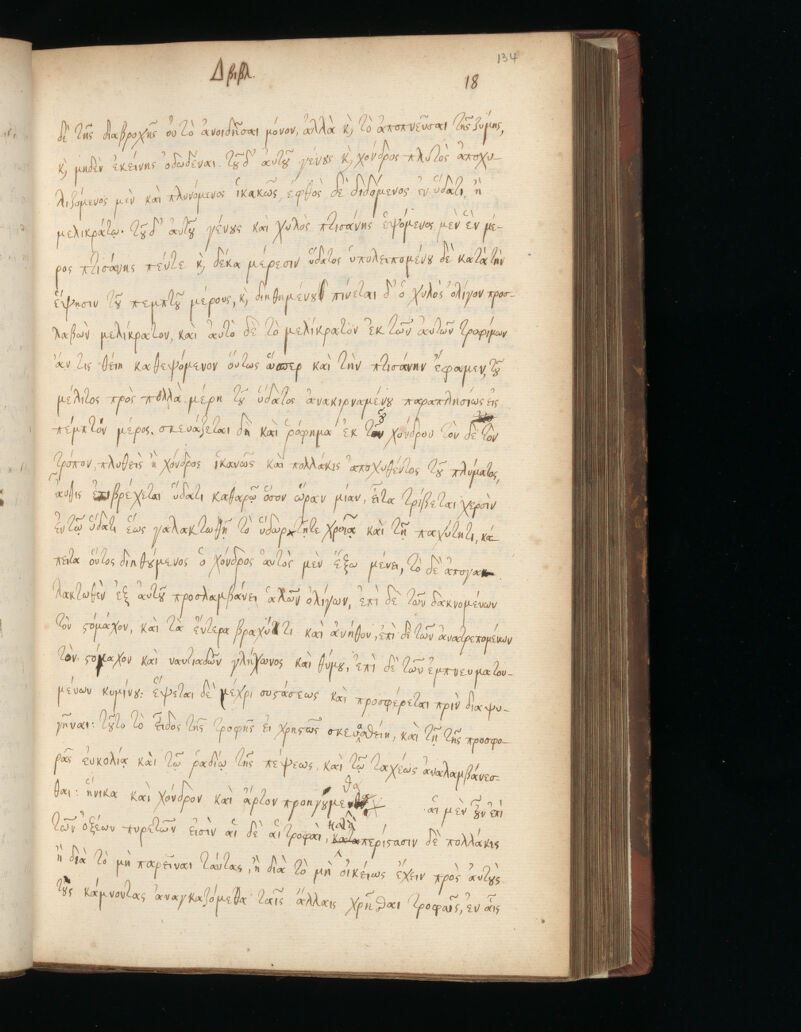 134
Δ βιβλ.
18
δὲ τῆς διαβροχῆς οὐ τὸ ἀνοιδῆσαι μόνον, ἀλλὰ κ̀ τὸ ἀποπνεῦσαι τῆς ζύμης,
κ̀ μηδὲν ἐκείνης ὀδωδέναι. τοῦ δ' αὐτοῦ γένους κ̀ χόνδρος πλυτὸς ἀποχυ-
λιζόμενος μὲν καὶ πλυνόμενος ἱκανῶς, ἑφθὸς δὲ διδόμενος ἐν ὕδατι ἢ
μελικράτῳ. τοῦ δ' αὐτοῦ γένους καὶ χυλὸς πτισάνης ἑψόμενος μὲν ἓν μέ-
ρος πτισάνης πέντε κ̀ δέκα μέρεσιν ὕδατος ὑπολειπομένου δὲ κατὰ τὴν
ἕψησιν τοῦ πεμπτοῦ μέρους, κ̀ διηθημένου πίνεται δ' ὁ χυλὸς ὀλίγον προσ-
λαβὼν μελίκρατον, καὶ αὐτὸ δὲ τὸ μελίκρατον ἐκ τῶν αὐτῶν τροφίμων
ἄν τις θείη καθεψόμενον οὕτως ὥσπερ καὶ τὴν πτισάνην ἔφαμεν, τοῦ
μέλιτος πρὸς πολλὰ μέρη τοῦ ὕδατος ἀνακιρναμένου παραπλησίως εἰς
πέμπτον μέρος. σκευάζεται δὴ καὶ ῥόφημα ἐκ τοῦ χόνδρου τὸν δὲ τὸν
τρόπον, πλυθεὶς ἢ χόνδρος ἱκανῶς καὶ πολλάκις ἀποχυθέντος τοῦ πλύματος,
αὖθις ἐπιβρέχεται ὕδατι καθαρῷ ὅσον ὥραν μίαν, εἶτα τρίβεται χερσὶν
ἐν τῷ ὕδατι ἕως γαλακτωθῇ τὸ ὕδωρ τῇτε χροιᾷ καὶ τῇ παχύτητι, κά-
πειτα οὕτος διηθούμενος ὁ χόνδρος αὐτὸς μὲν ἔξω μένει, τὸ δὲ ἀπογα-
λακτωθὲν ἐξ αὐτοῦ προσλαμβάνει ἁλῶν ὀλίγων, ἐπὶ δὲ τῶν δακνομένων
τὸν στόμαχον, καὶ τὰ ἔντερα βραχύ τι καὶ ἀνήθου, ἐπὶ δὲ τῶν ἀνατρεπομένων
τὸν στόμαχον καὶ ναυτιαδῶν γλήχωνος καὶ θύμου, ἐπὶ δὲ τῶν ἐμπνευματου-
μένων κυμίνου: ἕψεται δὲ μέχρι συστάσεως καὶ προσφέρεται πρὶν διαψυ-
γῆναι: τοῦτο τὸ εἶδος τῆς τροφῆς εἰ χρηστῶς σκευαθείη, καὶ τῇ τῆς προσφο-
ρᾶς εὐκολίᾳ καὶ τῷ ῥαδίῳ τῆς πέψεως, καὶ τῷ ταχέως ἀναλαμβάνεσ-
θαι: ἡνικα καὶ χόνδρον καὶ ἄρτον προηγούμεθα αἱ μὲν οὖν ἐπὶ
τῶν ὀξέων πυρετῶν εἰσὶν αἱ δὲ αἱ τροφαὶ, κατὰ περίστασιν δὲ πολλάκις
ἢ διὰ τὸ μὴ παρεῖναι ταύτας, ἢ διὰ τὸ μὴ οἰκείως ἔχειν πρὸς αὐτοὺς
τοὺς κάμνοντας ἀναγκαζόμεθα ταῖς ἄλλαις χρῆσθαι τροφαῖς, ἐν αἷς